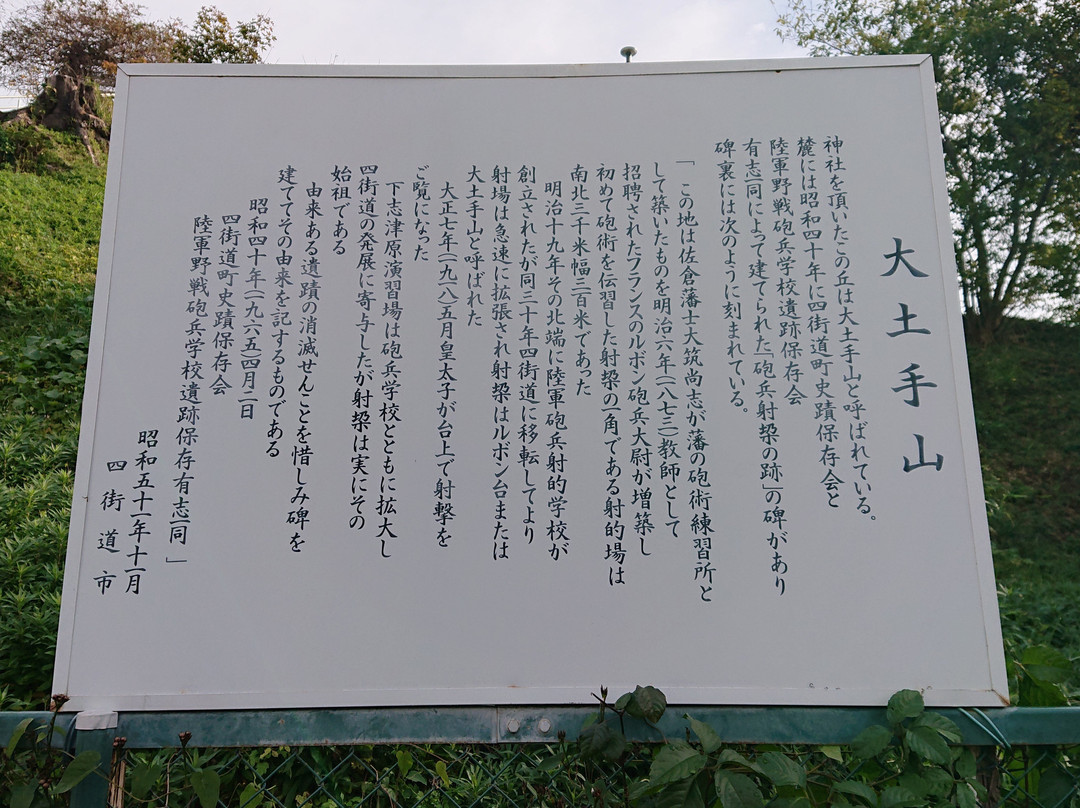 大土手山
神社を頂いたこの丘は大土手山と呼ばれている。
麓には昭和四十年に四街道町史蹟保存会と
陸軍野戦砲兵学校遺跡保存会
有志一同によって建てられた「砲兵射垜の跡」の碑があり
碑裏には次のように刻まれている。
「この地は佐倉藩士大筑尚志が藩の砲術練習所と
して築いたものを明治六年(一八七三)教師として
招聘されたフランスのルボン砲兵大尉が増築し
初めて砲術を伝習した射垜の一角である射的場は
南北三千米幅三百米であった
明治十九年その北端に陸軍砲兵射的学校が
創立されたが同三十年四街道に移転してより
射場は急速に拡張され射垜はルボン台または
大土手山と呼ばれた
大正七年(一九一八)五月皇太子が台上で射撃を
ご覧になった
下志津原演習場は砲兵学校とともに拡大し
四街道の発展に寄与したが射垜は実にその
始祖である
由来ある遺蹟の消滅せんことを惜しみ碑を
建ててその由来を記するものである
昭和四十年(一九六五)四月二日
四街道町史蹟保存会
陸軍野戦砲兵学校遺跡保存有志一同」
昭和五十一年十一月
四街道市